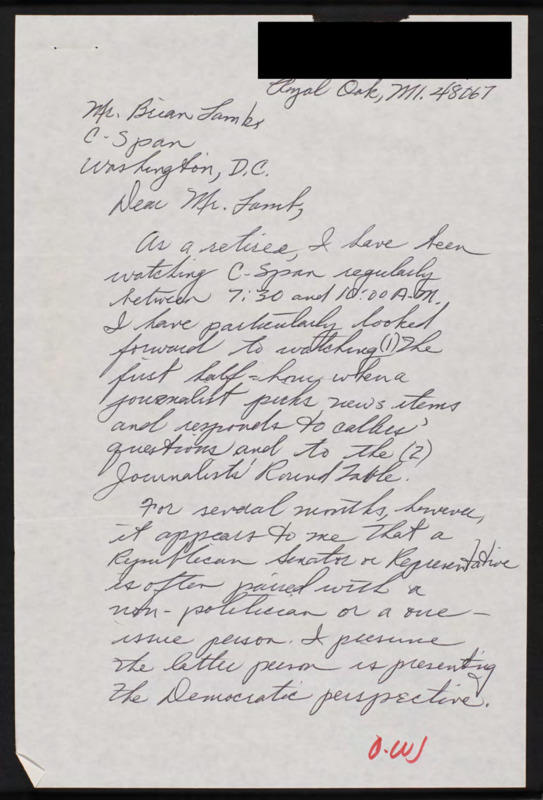 Royal Oak, MI. 48067
Mr. Brian Lamb,
C-Span
Washington, D.C.
Dear Mr. Lamb,
As a retiree, I have been
watching C-Span regularly
between 7:30 and 10:00 A.M.
I have particularly looked
forward to watching (1) the
first half-hour when a
journalist picks news items
and responds to callers'
questions and to the (2)
Journalists' Round Table.
For several months, however,
it appears to me that a
Republican Senator or Representative
is often paired with a
non-politician or a one-
issue person. I presume
the latter person is presenting
the Democratic perspective.